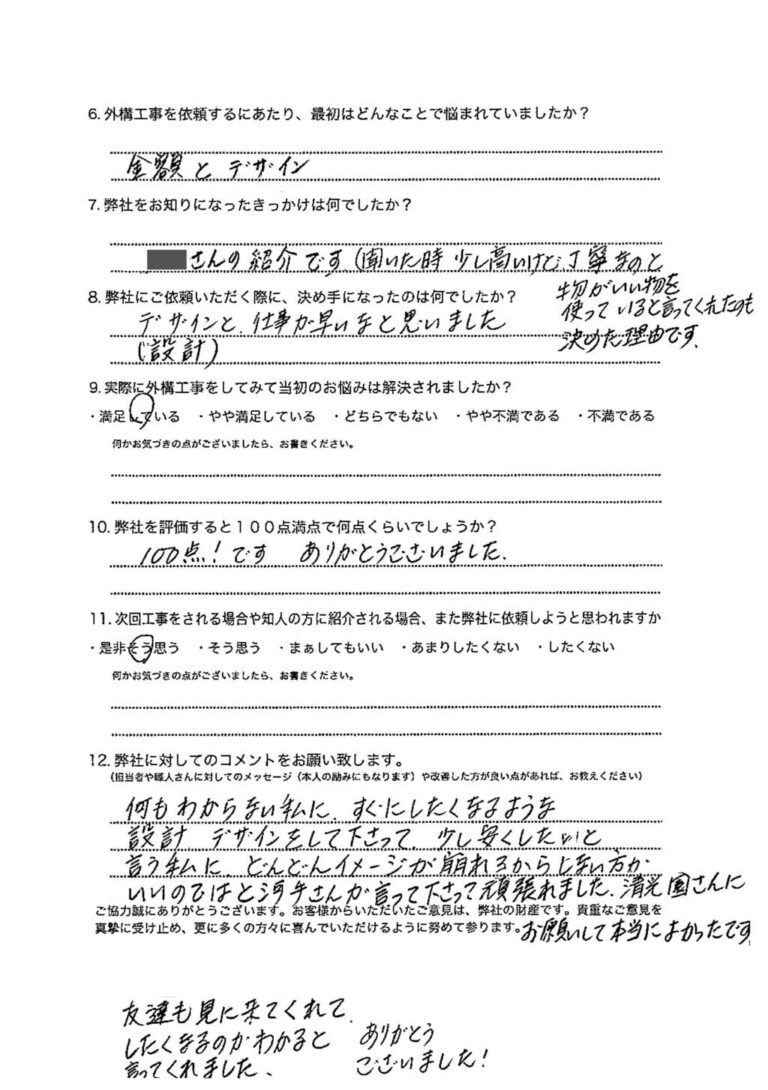 6. 外構工事を依頼するにあたり、最初はどんなことで悩まれていましたか？
金額と デザイン
7. 弊社をお知りになったきっかけは何でしたか？
さんの紹介です、(聞いた時 少し高いけど、丁寧なのと
物がいい物を
使っていると言ってくれたのも
決めた理由です、
8. 弊社にご依頼いただく際に、決め手になったのは何でしたか？
デザインと、仕事が早いなと思いました
(設計)
9. 実際に外構工事をしてみて当初のお悩みは解決されましたか？
・満足している ・やや満足している ・どちらでもない ・やや不満である ・不満である
何かお気づきの点がございましたら、お書きください。
10. 弊社を評価すると１００点満点で何点くらいでしょうか？
100点！です ありがとうございました.
11. 次回工事をされる場合や知人の方に紹介される場合、また弊社に依頼しようと思われますか
・是非そう思う ・そう思う ・まぁしてもいい ・あまりしたくない ・したくない
何かお気づきの点がございましたら、お書きください。
12. 弊社に対してのコメントをお願い致します。
（担当者や職人さんに対してのメッセージ（本人の励みにもなります）や改善した方が良い点があれば、お教えください）
何もわからない私に、すぐにしたくなるような
設計 デザインをして下さって、少し安くしたいと
言う私に、どんどんイメージが崩れるからしない方が
いいのではと河手さんが言って下さって頑張れました、清光園さんに
お願いして本当によかったです
ご協力誠にありがとうございます。お客様からいただいたご意見は、弊社の財産です。貴重なご意見を
真摯に受け止め、更に多くの方々に喜んでいただけるように努めて参ります。
友達も見に来てくれて、
したくなるのがわかると
言ってくれました、
ありがとう
ございました！